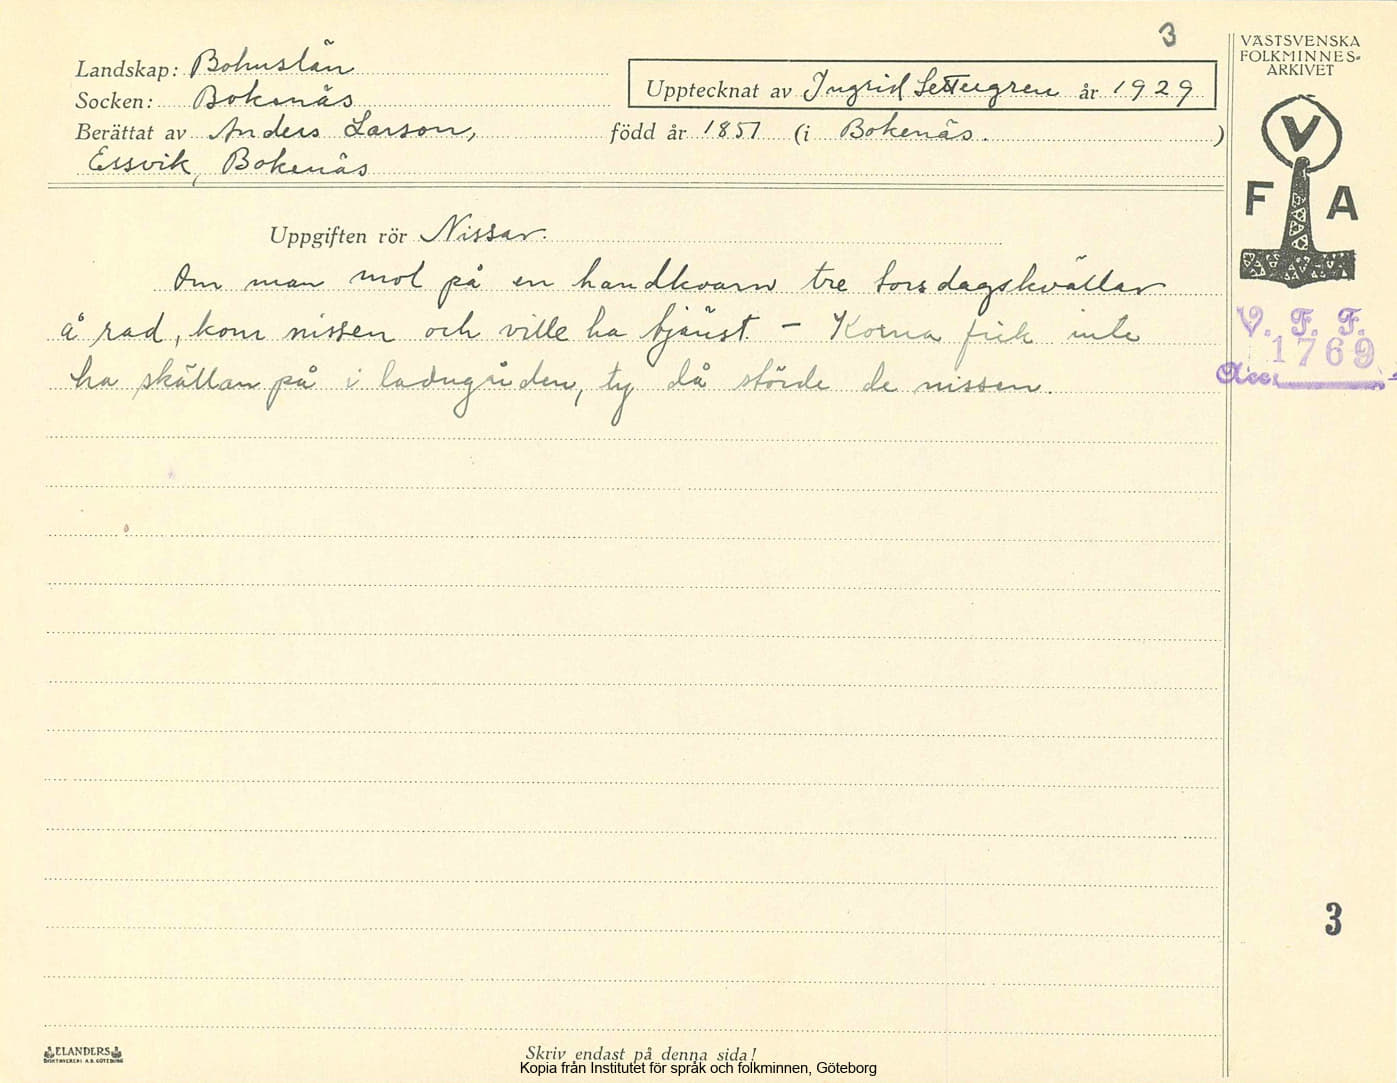 3
VÄSTSVENSKA
FOLKMINNES-
ARKIVET
Landskap: Bohuslän
Upptecknat av Ingrid Settergren år 1929
Socken: Bokenäs
Berättat av Anders Larson, född år 1857 (i Bokenäs. )
Essvik, Bokenäs
V
F A
Uppgiften rör Nissar.
Om man mol på en handkvarn tre torsdagskvällar
å rad, kom nissen och ville ha tjänst. – Korna fick inte
ha skällan på i ladugården, ty då störde de nissen.
V. F. F.
1769
Acc.
3
ELANDERS
BOKTRYCKERI A.B. GÖTEBORG
Skriv endast på denna sida!
Kopia från Institutet för språk och folkminnen, Göteborg